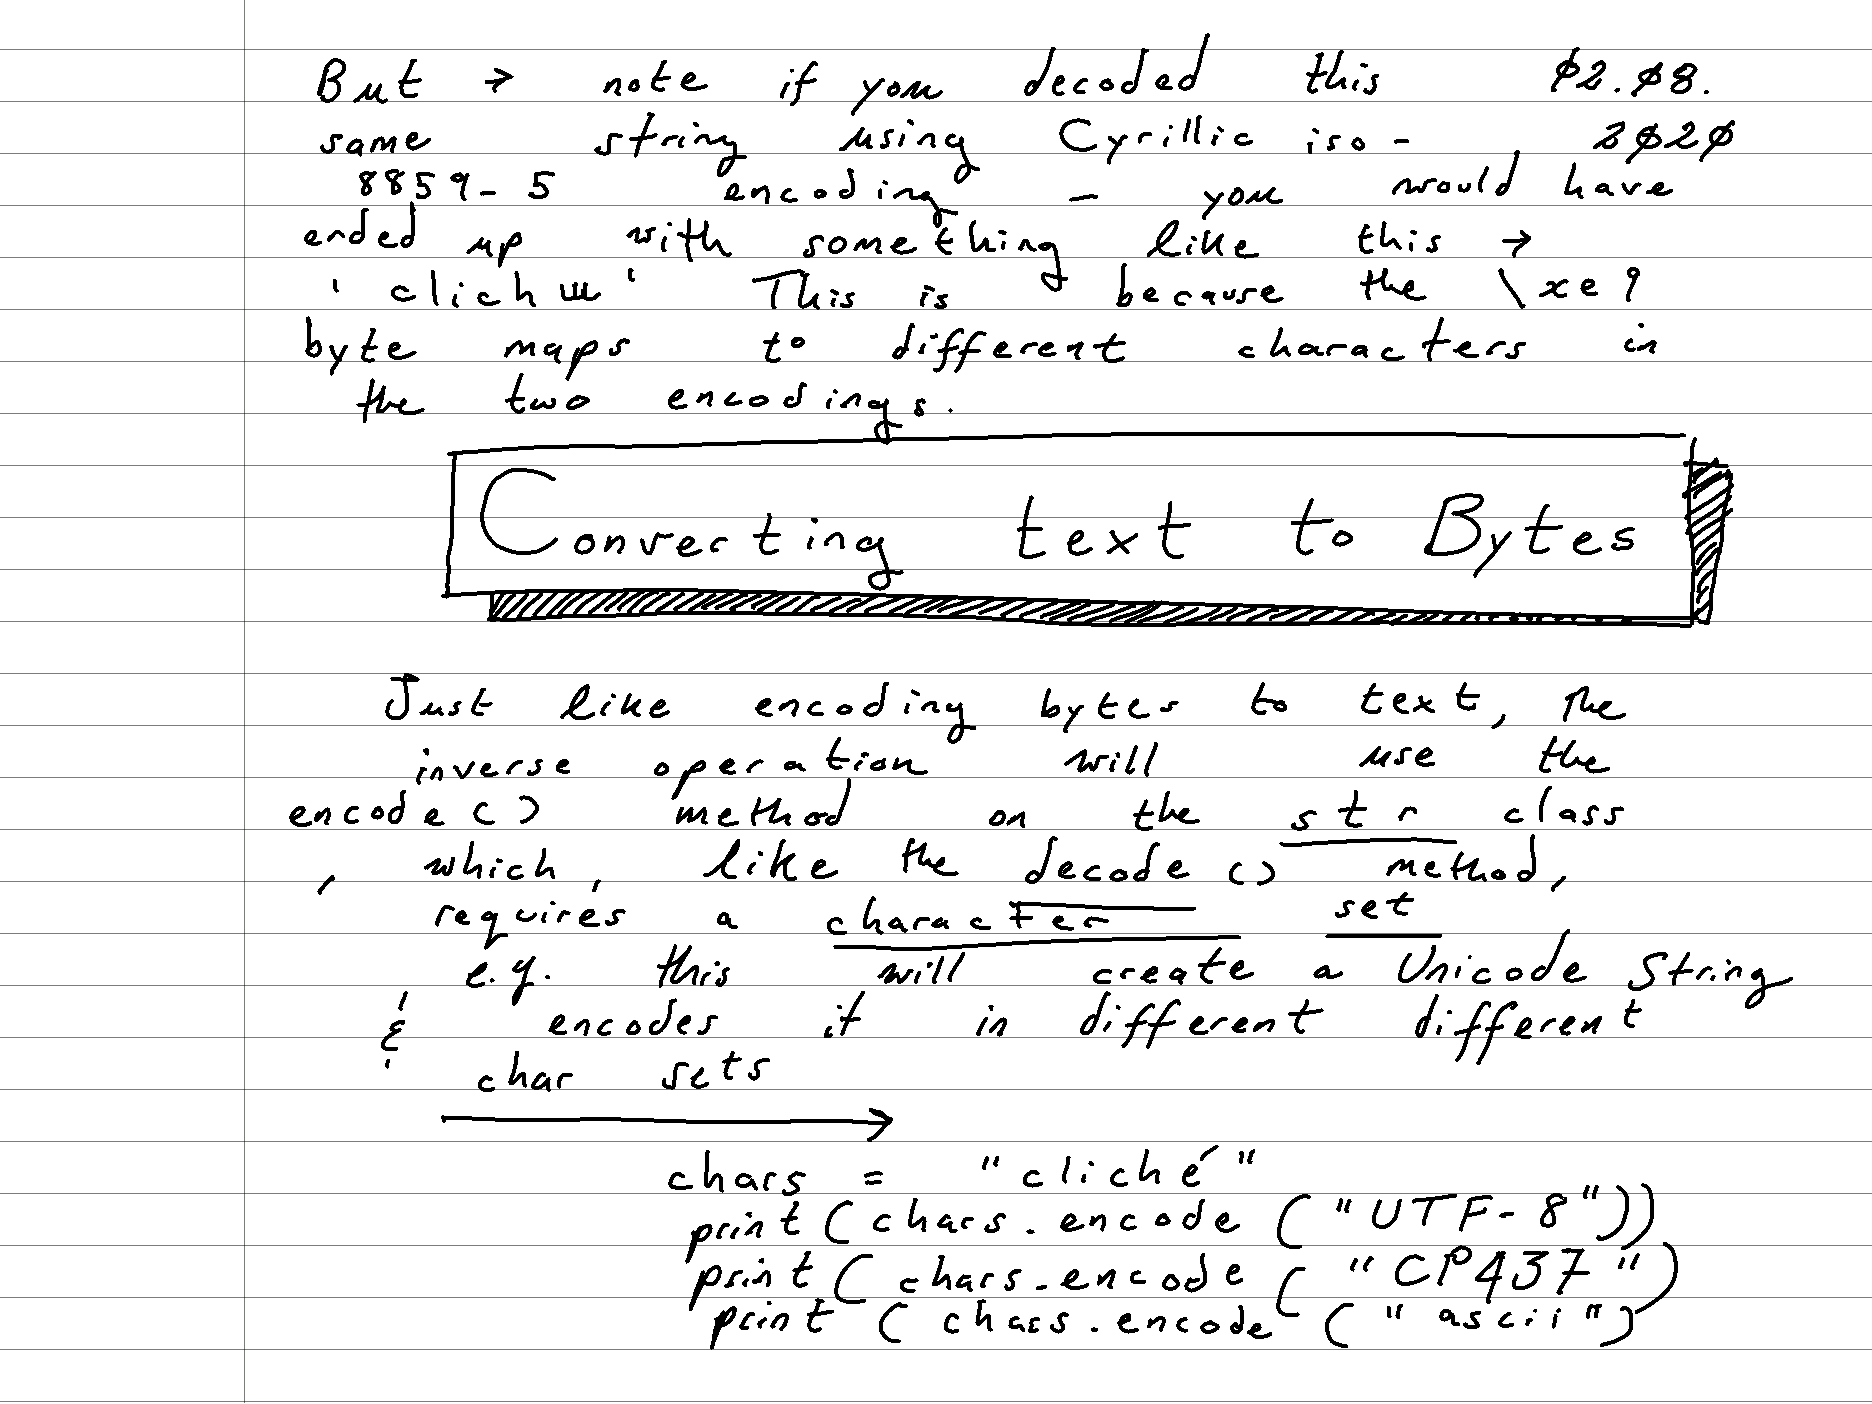 But → note if you decoded this 02.08.
same string using Cyrillic iso- 2020
8859-5 encoding - you would have
ended up with something like this →
'clichш' This is because the \xe9
byte maps to different characters in
the two encodings.
Converting text to Bytes
Just like encoding bytes to text, the
inverse operation will use the
encode() method on the str class
, which, like the decode() method,
requires a character set
e.g. this will create a Unicode String
& encodes it in different different
char sets
→
chars = "cliché"
print(chars.encode("UTF-8"))
print(chars.encode("CP437")
print(chars.encode("ascii")